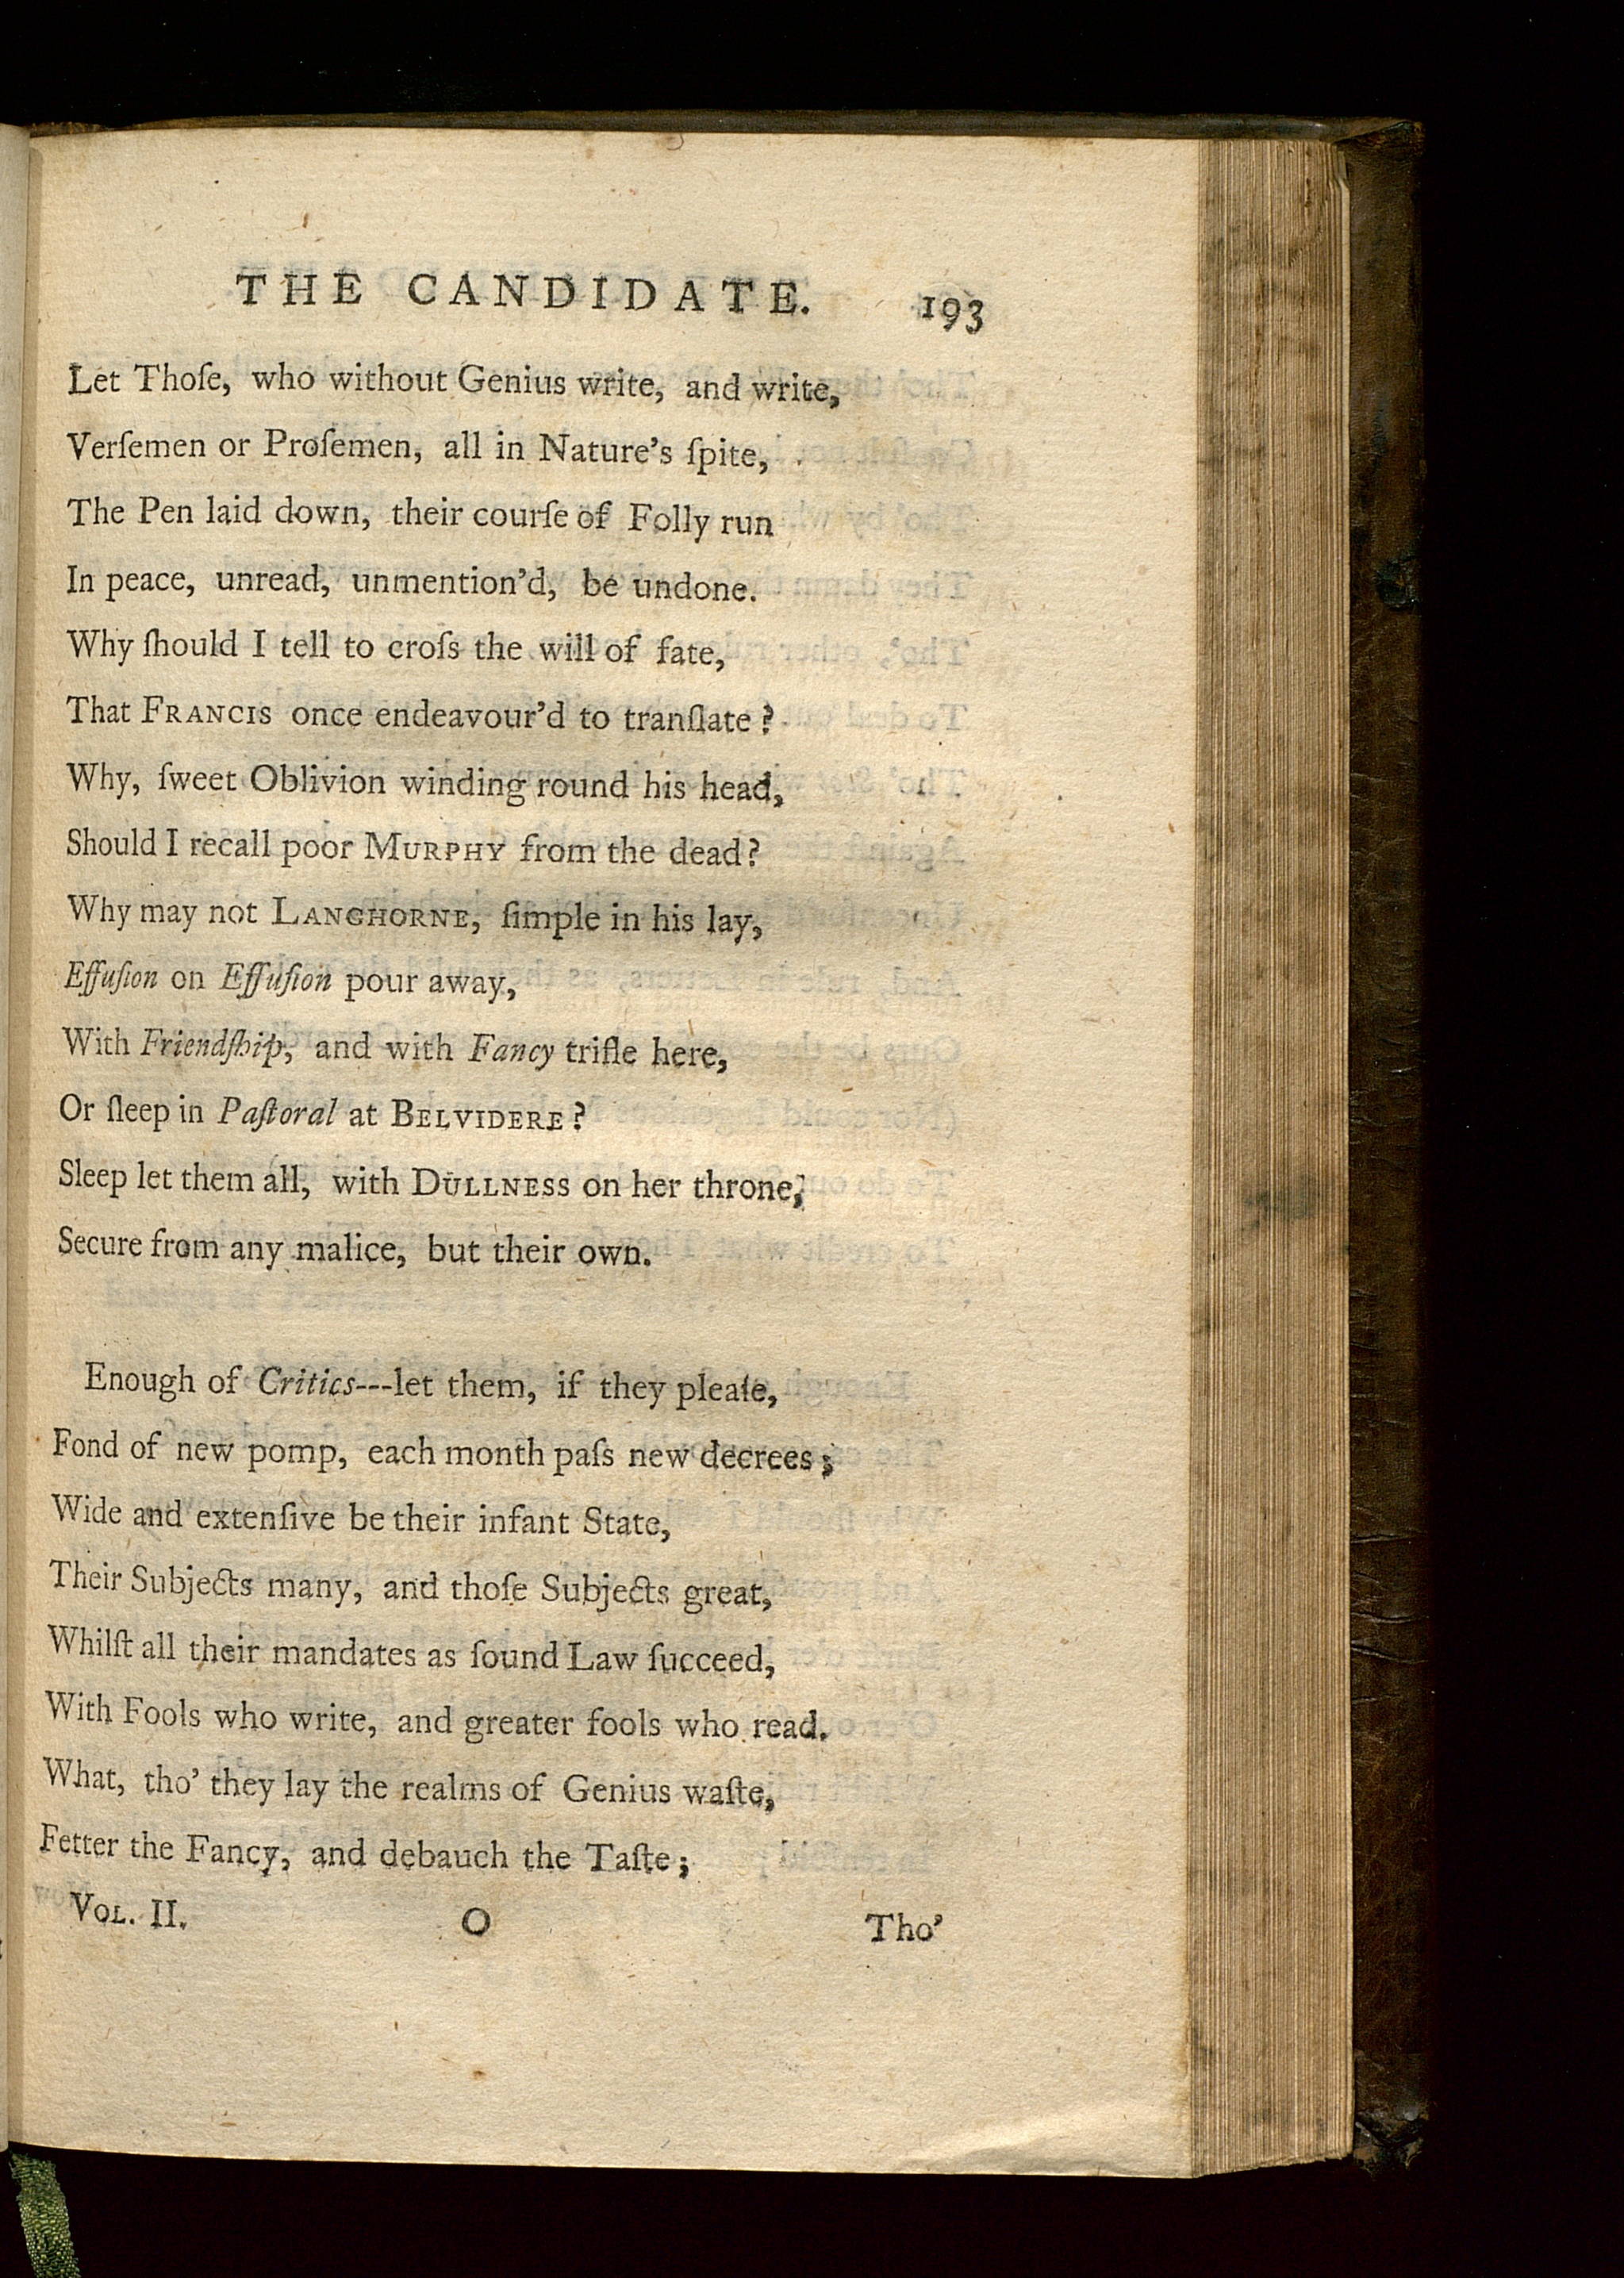 THE CANDIDATE. 193
Let Thoſe, who without Genius write, and write,
Verſemen or Proſemen, all in Nature's ſpite,
The Pen laid down, their courſe of Folly run
In peace, unread, unmention'd, be undone.
Why ſhould I tell to croſs the will of fate,
That FRANCIS once endeavour'd to tranſlate?
Why, ſweet Oblivion winding round his head,
Should I recall poor MURPHY from the dead?
Why may not LANGHORNE, ſimple in his lay,
Effuſion on Effuſion pour away,
With Friendſhip, and with Fancy trifle here,
Or ſleep in Paſtoral at BELVIDERE?
Sleep let them all, with DULLNESS on her throne,
Secure from any malice, but their own.
Enough of Critics---let them, if they pleaſe,
Fond of new pomp, each month paſs new decrees;
Wide and extenſive be their infant State,
Their Subjects many, and thoſe Subjects great,
Whilſt all their mandates as ſound Law ſucceed,
With Fools who write, and greater fools who read.
What, tho' they lay the realms of Genius waſte,
Fetter the Fancy, and debauch the Taſte;
VOL. II. O Tho'